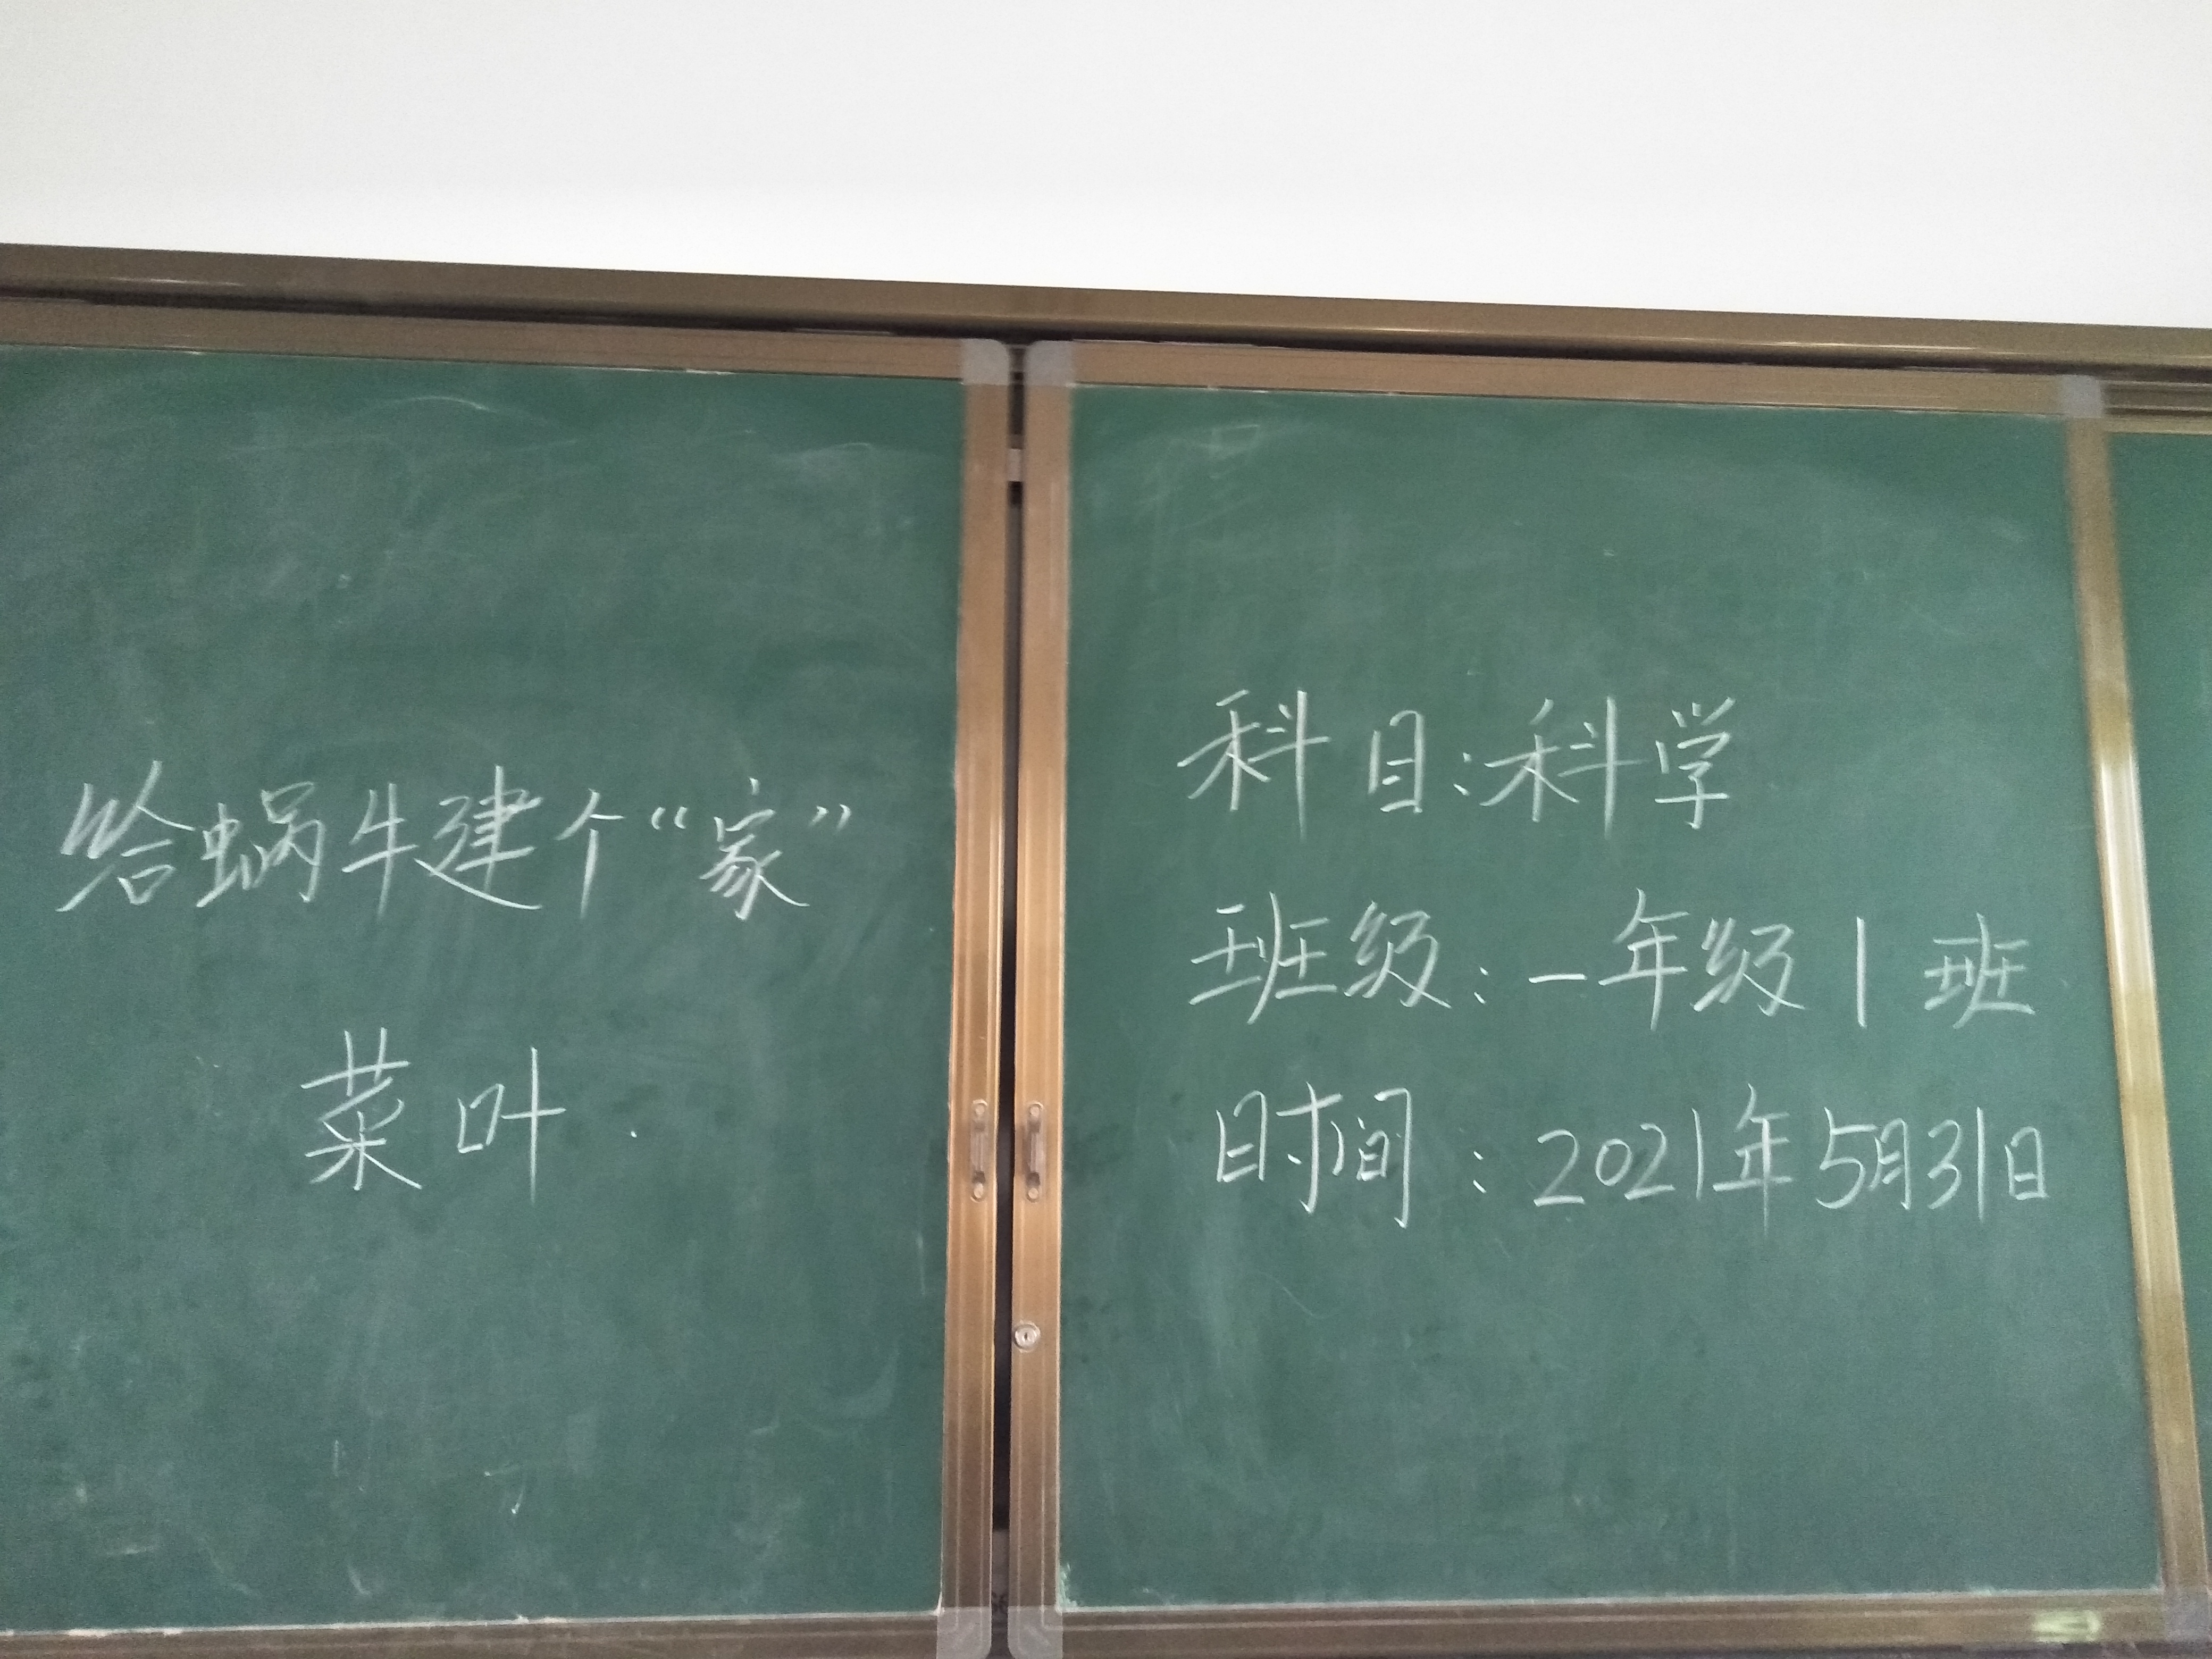 给蜗牛建个“家”
菜叶.
科目:科学
班级:一年级1班
时间:2021年5月31日